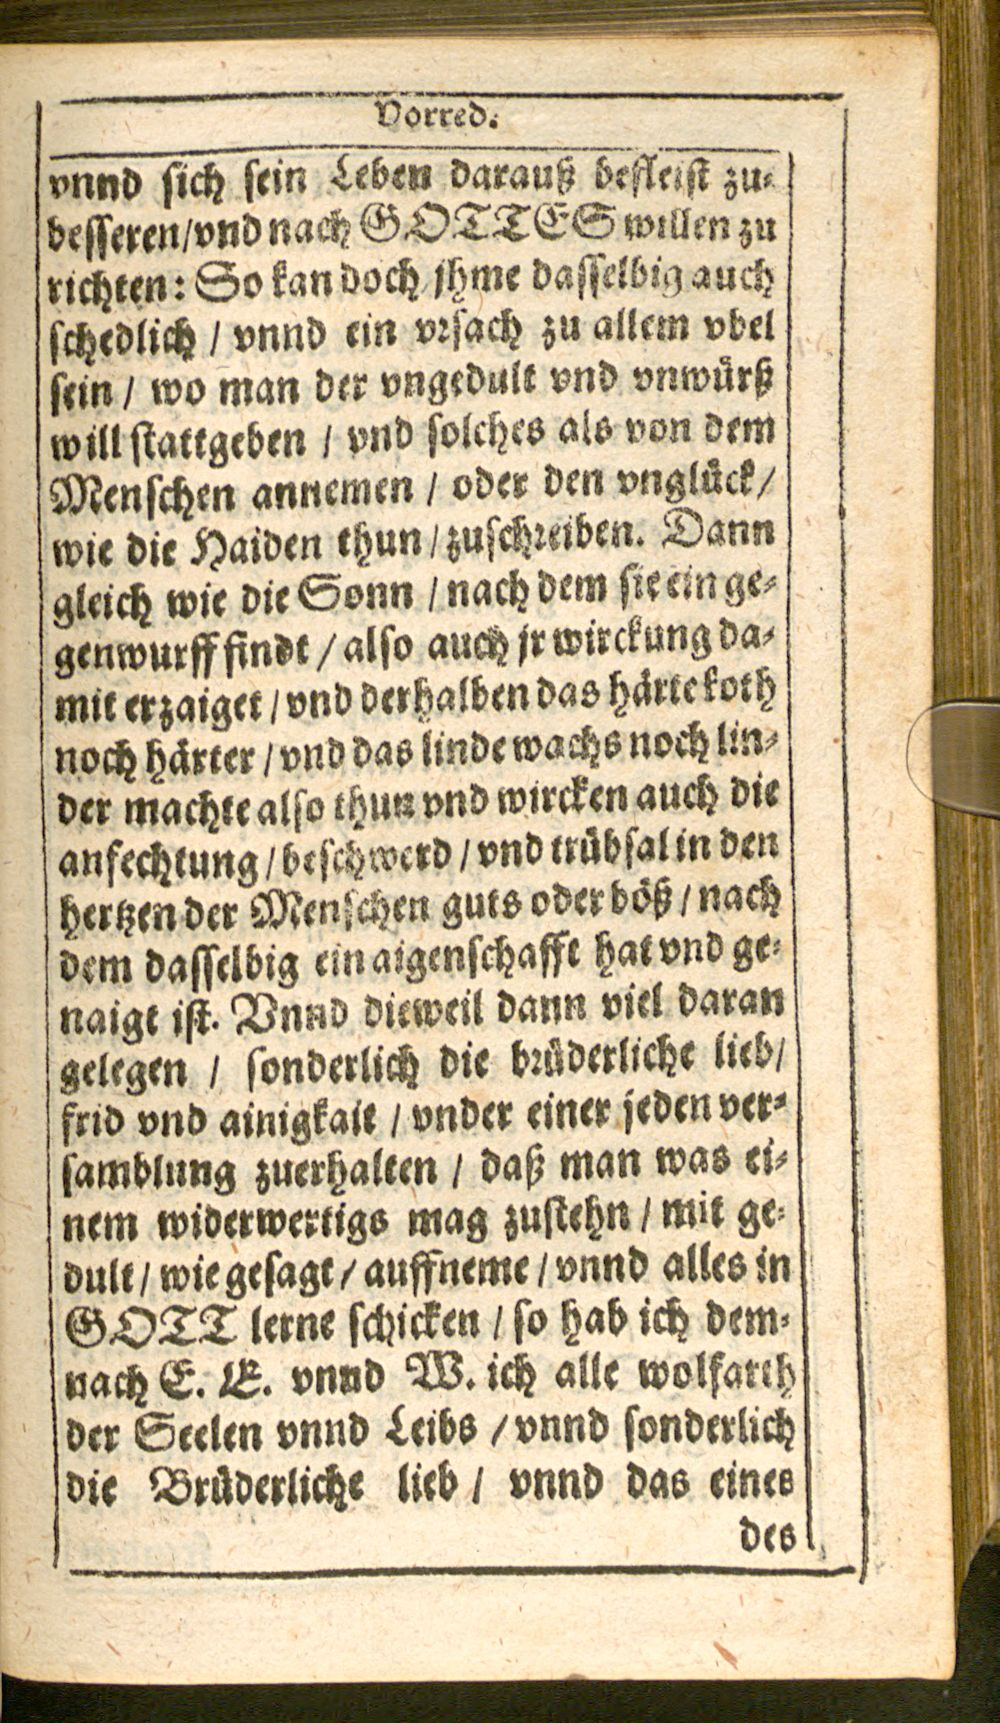 Vorred.
vnnd sich sein Leben darauß befleist zu-
besseren/vnd nach GOTTES willen zu
richten: So kan doch jhme dasselbig auch
schedlich / vnnd ein vrsach zu allem vbel
sein / wo man der vngedult vnd vnwürß
will stattgeben / vnd solches als von dem
Menschen annemen / oder den vnglück/
wie die Haiden thun / zuschreiben. Dann
gleich wie die Sonn / nach dem sie ein ge-
genwurff findt / also auch jr wirckung da-
mit erzaiget / vnd derhalben das härte koth
noch härter / vnd das linde wachs noch lin-
der machte also thun vnd wircken auch die
anfechtung / beschwerd / vnd trübsal in den
hertzen der Menschen guts oder böß / nach
dem dasselbig ein aigenschafft hat vnd ge-
naigt ist. Vnnd dieweil dann viel daran
gelegen / sonderlich die brüderliche lieb/
frid vnd ainigkait / vnder einer jeden ver-
samblung zuerhalten / daß man was ei-
nem widerwertigs mag zustehn / mit ge-
dult / wie gesagt / auffneme / vnnd alles in
GOTT lerne schicken / so hab ich dem-
nach E. E. vnnd W. ich alle wolfarth
der Seelen vnnd Leibs / vnnd sonderlich
die Brüderliche lieb / vnnd das eines
des